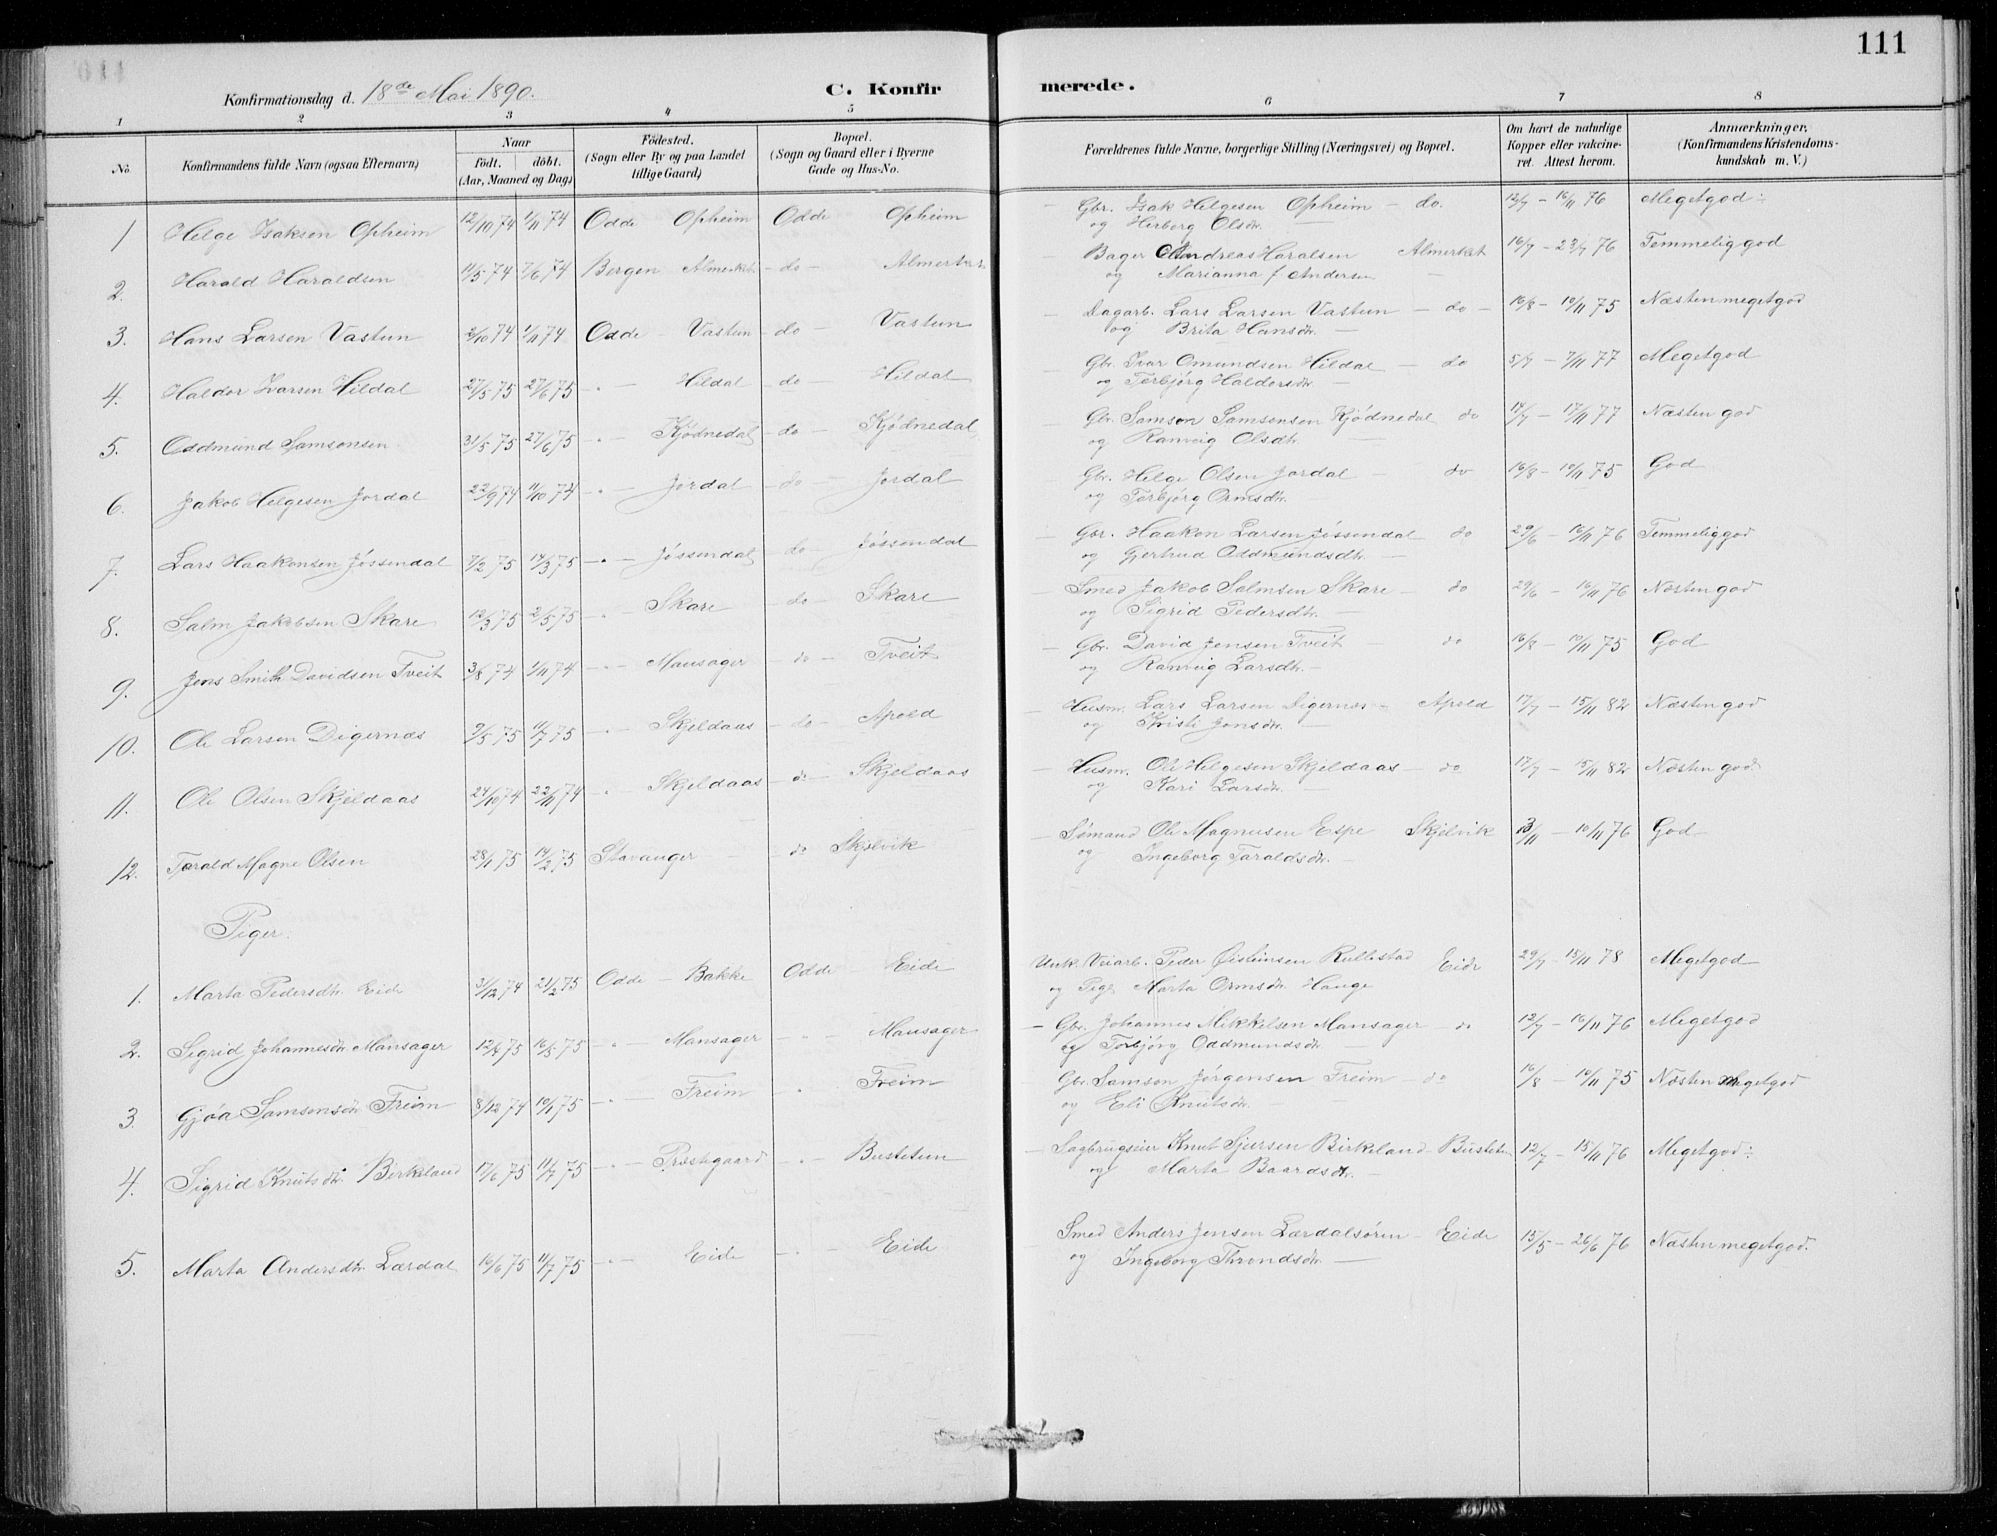 111
Konfirmationsdag d. 18de Mai 1890.
C. Konfirmerede.
1 2 3 4 5 6 7 8
No.
Konfirmandens fulde Navn (ogsaa Efternavn)
Naar
født. døbt.
(Aar, Maaned og Dag)
Fødested.
(Sogn eller By og paa Landet
tillige Gaard)
Bopæl.
(Sogn og Gaard eller i Byerne
Gade og Hus-No.
Forældrenes fulde Navne, borgerlige Stilling (Næringsvei) og Bopæl.
Om havt de naturlige
Kopper eller vakcine-
ret. Attest herom.
Anmærkninger.
(Konfirmandens Kristendoms-
kundskab m. V.)
1 Helge Isaksen Opheim 12/10 74 1/11 74 Odde Opheim Odde Opheim – Gbr. Isak Helgesen Opheim – do. 12/7 – 16/11 76 Megetgod
og Herborg Olsdr. –
2. Harald Haraldsen 11/5 74 7/6 74 Bergen Almerket – do – Almerket – Bager Andreas Haralsen Almerket 16/7 – 23/7 76 Temmelig god
og Marianna f. Andersen –
3. Hans Larsen Vastun 2/10 74 1/11 74 Odde – Vastun – do – Vastun – Dagarb. Lars Larsen Vastun – do – 16/8 – 10/11 75 Næsten megetgod
og Brita Hansdr. –
4. Haldor Ivarsen Hildal 27/5 75 27/6 75 – " – Hildal – do – Hildal Gbr. Ivar Omundsen Hildal – do 5/7 – 7/11 77 Megetgod
og Torbjørg Haldorsdr. –
5. Oddmund Samsonsen 31/5 75 27/6 75 – " – Kjødnedal – do – Kjødnedal Gbr. Samson Samsonsen Kjødnedal do 14/7 – 17/11 77 Næsten god
og Ranveig Olsdtr. –
6. Jakob Helgesen Jordal 22/9 74 11/10 74 – " – Jordal – do – Jordal Gbr. Helge Olsen Jordal – do 16/8 – 10/11 75 God
og Torbjørg Ormsdr. –
7. Lars Haakonsen Jøssendal 7/2 75 14/3 75 – " – Jøssendal – do – Jøssendal – Gbr. Haakon Larsen Jøssendal do 29/6 – 16/11 76 Temmelig god
og Gjertrud Oddmundsdtr. –
8. Salm Jakobsen Skare 12/3 75 2/5 75 – " Skare – do – Skare – Smed Jakob Salmsen Skare – do 29/6 – 16/11 76 Næsten god
og Sigrid Pedersdtr. –
9. Jens Smith Davidsen Tveit 3/8 74 1/11 74 – " – Mansager – do – Tveit – Gbr. David Jensen Tveit – do 16/8 – 10/11 75 God
og Ranveig Larsdtr. –
10. Ole Larsen Digernæs 9/5 75 11/7 75 – " – Skjeldaas – do – Apold – Husm. Lars Larsen Digernæs – Apold 17/7 – 15/11 82 Næsten god
og Kristi Jonsdr. –
11. Ole Olsen Skjeldaas 24/10 74 22/11 74 – " – Skjeldaas – do – Skjeldaas – Husm. Ole Helgesen Skjeldaas – do 17/7 – 15/11 82 Næsten god
og Kari Larsdr. –
12. Tarald Magne Olsen 28/1 75 14/2 75 Stavanger – do – Skjelvik – Sømand Ole Magnusen Espe Skjelvik 13/11 – 10/11 76 God
og Ingeborg Taraldsdr. –
Piger.
1. Marta Pedersdr. Eide 31/12 74 21/2 75 Odde – Bakke Odde – Eide Unk. Veiarb. Peder Øisteinsen Rullestad Eide 29/7 – 15/11 78 Megetgod
og Pige Marta Ormsdr. Hauge
2. Sigrid Johannesdr. Mansager 12/4 75 16/5 75 – " – Mansager – " – Mansager – Gbr. Johannes Mikkelsen Mansager – do 12/7 – 16/11 76 Megetgod
og Torbjørg Oddmundsdr. –
3. Gjøa Samsonsdr. Freim 8/12 74 10/1 75 – " – Freim – " Freim Gbr. Samson Jørgensen Freim – do 16/8 – 10/11 75 Næsten megetgod
og Eli Knutsdr. –
4. Sigrid Knutsdr. Birkeland 17/6 75 11/7 75 – " – Præstegaard – " – Bustetun – Sagbrugseier Knut Sjursen Birkeland Bustetun 12/7 – 15/11 76 Megetgod
og Marta Baardsdr. –
5. Marta Andersdtr. Lærdal 16/6 75 11/7 75 – " – Eide – " – Eide Smed Anders Jensen Lærdalsøren – Eide 15/5 – 26/6 76 Næsten megetgod.
og Ingeborg Throndsdr. –